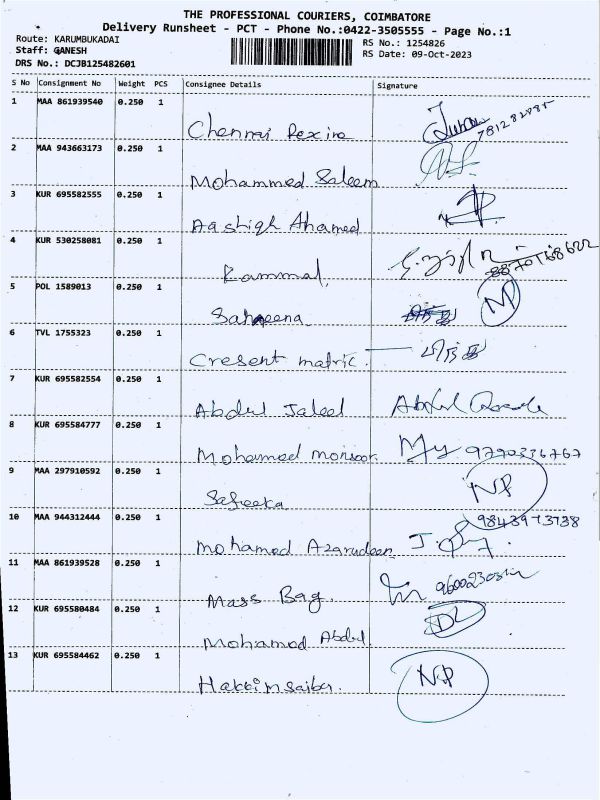 THE PROFESSIONAL COURIERS, COIMBATORE
Delivery Runsheet - PCT - Phone No.:0422-3505555 - Page No.:1
Route: KARUMBUKADAI
RS No.: 1254826
Staff: GANESH
RS Date: 09-Oct-2023
DRS No.: DCJB125482601
S No Consignment No Weight PCS Consignee Details Signature
1 MAA 861939540 0.250 1
Chennai Rexine
2 MAA 943663173 0.250 1
Mohammed Saleem
3 KUR 695582555 0.250 1
Aashiqh Ahamed
4 KUR 530258081 0.250 1
Rammal.
5 POL 1589013 0.250 1
Saheena NP
6 TVL 1755323 0.250 1
Cresent matric.
7 KUR 695582554 0.250 1
Abdul Jaleel Abdul
8 KUR 695584777 0.250 1
Mohamed monsoor. 9790336767
9 MAA 297910592 0.250 1
Safeeka NP
10 MAA 944312444 0.250 1 9843973738
Mohamed Azarudeen J.
11 MAA 861939528 0.250 1
Mass Bag.
12 KUR 695580484 0.250 1 DL
Mohamed Abdul.
13 KUR 695584462 0.250 1 NP
Hakkim saiba.